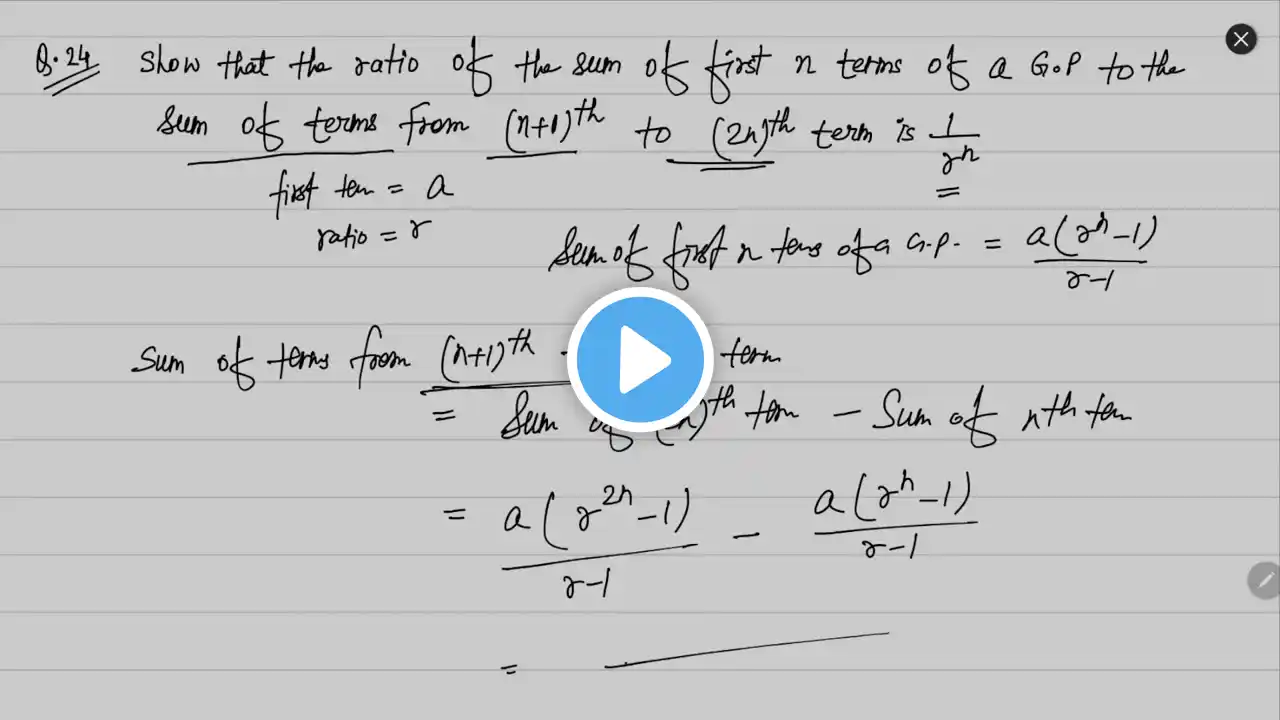 Q.24 Show that the ratio of the sum of first n terms of a G.P to the
sum of terms from (n+1)^th to (2n)^th term is 1/r^n
first ten = a
ratio = r
Sum of first n tens of a G.P. = a(r^n-1)/r-1
Sum of terms from (n+1)^th term
= Sum of (2n)^th ten - Sum of nth ten
= a(r^2n-1)/r-1 - a(r^n-1)/r-1
=